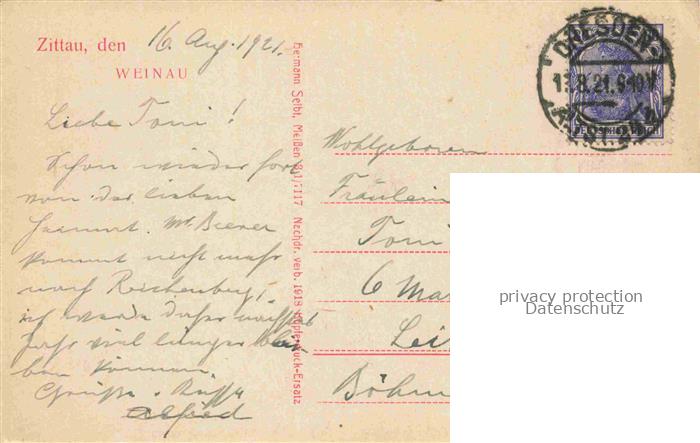 Zittau, den 16. Aug. 1921.
WEINAU
Liebe Toni!
Schon wieder fort
von der lieben
kommt nicht mehr
nach Reichenberg,
ich werde daher
viel länger
ben können.
Grüße
Alfred
Hermann Seibt, Meißen 1917117 Nachdr. verb. 1918 Kupferdruck-Ersatz
DRESDEN
.8.21.
DEUTSCHES REICH
Wohlgeboren
Fräulein
Toni
6 Mar
Lei
Böhm
privacy protection
Datenschutz